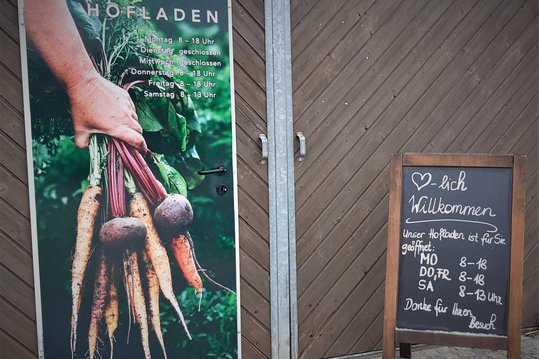 HOFLADEN
Montag 8 - 18 Uhr
Dienstag geschlossen
Mittwoch geschlossen
Donnerstag 8 - 18 Uhr
Freitag 8 - 18 Uhr
Samstag 8 - 13 Uhr
♡-lich
Willkommen
Unser Hofladen ist für Sie
geöffnet:
MO 8-18
DO, FR 8-18
SA 8-13 Uhr
Danke für Ihren
Besuch